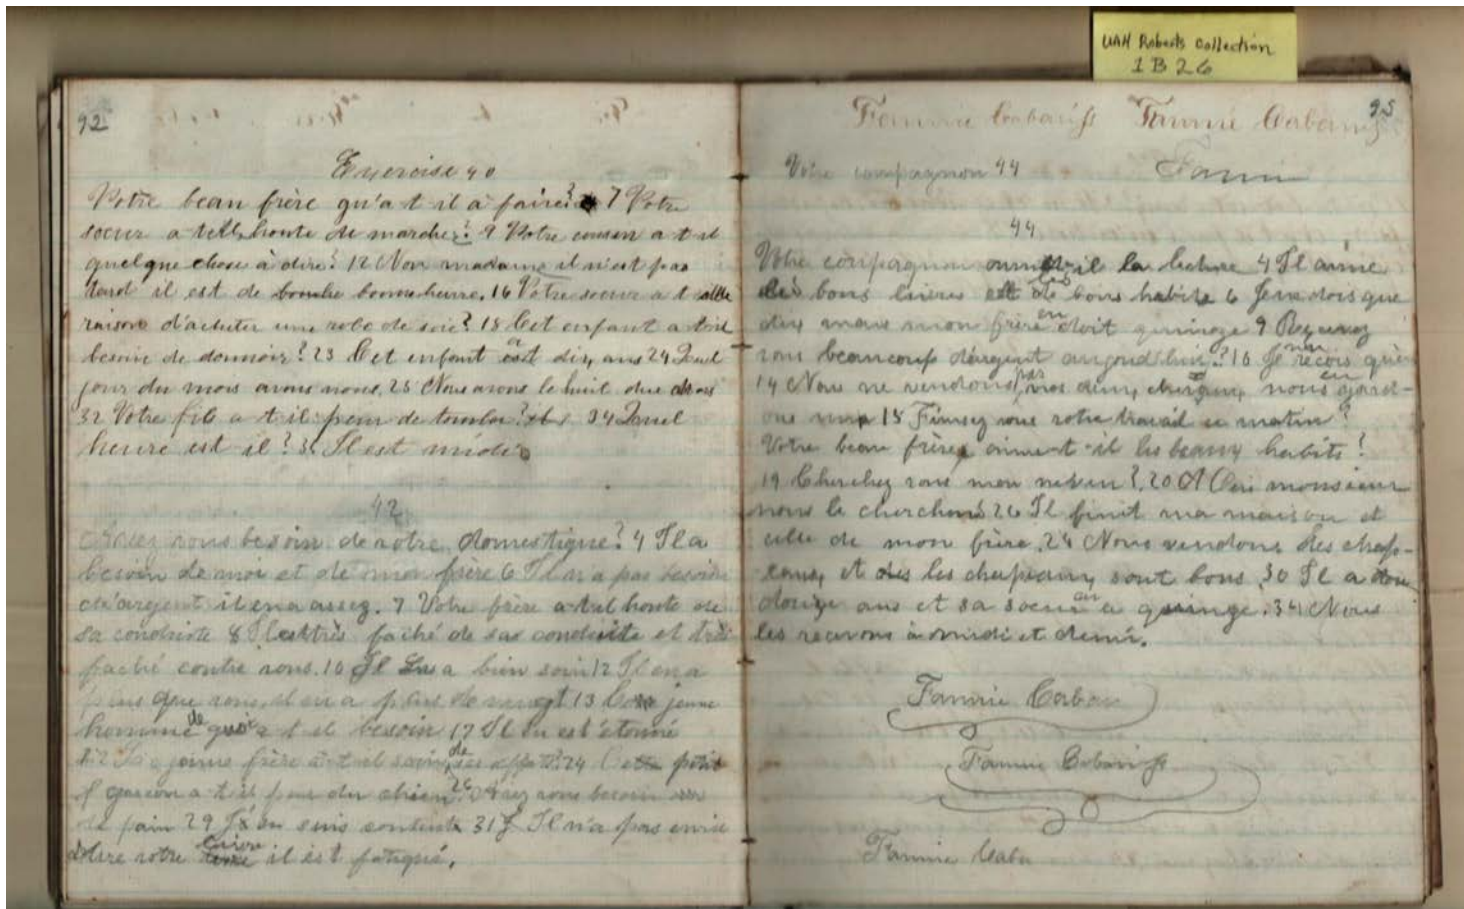 UAH Roberts Collection
1 B 26
92
Exercise 40
Votre beau frère qu'a t il à faire? 7 Votre
soeur a t elle honte de marcher? 9 Votre cousin a t il
quelque chose à dire? 12 Non madame il n'est pas
tard il est de bonne heure. 16 Votre soeur a t elle
raison d'acheter une robe de soie? 18 Cet enfant a t il
besoin de dormir? 23 Cet enfant a dix ans 24 Quel
jour du mois avons nous. 25 Nous avons le huit du mois
32 Votre fils a t il peur de tomber? 34 Quel
heure est il? 35 Il est midi
42
Avez vous besoin de votre domestique? 4 Il a
besoin de moi et de mon frère 6 Il n'a pas besoin
d'argent il en a assez. 7 Votre frère a-t-il honte de
sa conduite 8 Il est très faché de sa conduite et très
faché contre vous. 10 Il en a bien soin 12 Il en a
plus que vous, il en a plus de vingt 13 Ce jeune
homme de quoi a t il besoin 17 Il en est étonné
22 jeune frère a-t-il soin de ses 24 Cet petit
garcon a t il peur du chien 26 Avez vous besoin
de pain 29 J'en suis contente 31 Il n'a pas envie
lire votre livre il est fatigué.
93
Fannie Cabaniss Fannie Cabaniss
Votre compagnon 44 Fannie
44
Votre compagnon aime-t-il la lecture 4 Il aime
les bons livres et les bons habits 6 Je ne dois que
dix mais mon frère en doit quinze 9 Recevez
vous beaucoup d'argent aujourd'hui? 10 Je n'en reçois guère
14 Nous ne vendons pas nos deux chevaux, nous en gard-
ons un 15 Finisez vous votre travail ce matin?
Votre beau frère aime-t-il les beaux habits?
19 Cherchez vous mon voisin? 20 Oui monsieur
nous le cherchons 26 Il finit ma maison et
celle de mon frère. 24 Nous vendons des chap-
eaux, et les chapeaux sont bons 30 Il a
douze ans et sa soeur en a quinze. 34 Nous
les recevons à midi et demi.
Fannie Caban
Fannie Cabaniss
Fannie Caba